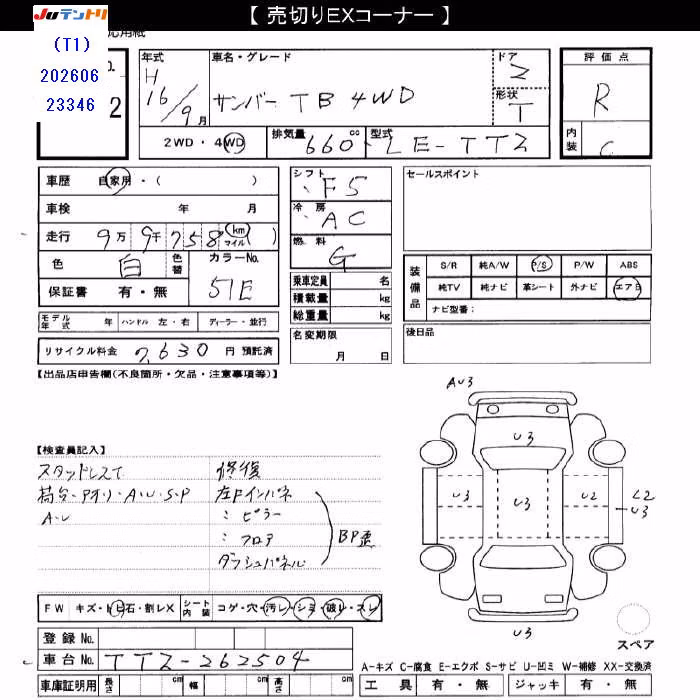 【 売切りEXコーナー 】
JUテントリ
応用紙
(T1)
202606
23346
2
年式
H
16/9月
車名・グレード
サンバー TB 4WD
ドア
2
形状
T
評価点
R
内装
C
2WD・4WD
排気量 660cc
型式 LE-TT2
車歴 自家用・( )
車検 年 月
走行 9万9千758 km マイル ( )
色 白 色替
カラーNo. 51E
保証書 有・無
シフト F5
冷房 AC
燃料 G
乗車定員 名
積載量 kg
総重量 kg
セールスポイント
装備品
S/R 純A/W P/S P/W ABS
純TV 純ナビ 革シート 外ナビ エアB
ナビ型番:
モデル年式 年 ハンドル 左・右 ディーラー・並行
名変期限 月 日
後日品
リサイクル料金 7,630 円 預託済
【出品店申告欄(不良箇所・欠品・注意事項等)】
【検査員記入】
スタッドレスT
荷台・アオリ・A・U・S・P
A・U
修復
左Fインパネ
: ピラー
: フロア
ダッシュパネル
BP歪
AU3
U3
U3
U3
U2
L2
U3
U3
スペア
FW キズ・トビ石・割レX
シート内装 コゲ・穴・汚レ・シミ・破レ・スレ
登録No.
車台No. TT2-262504
車庫証明用 長さ cm 幅 cm 高さ cm
A-キズ C-腐食 E-エクボ S-サビ U-凹ミ W-補修 XX-交換済
工具 有・無 ジャッキ 有・無